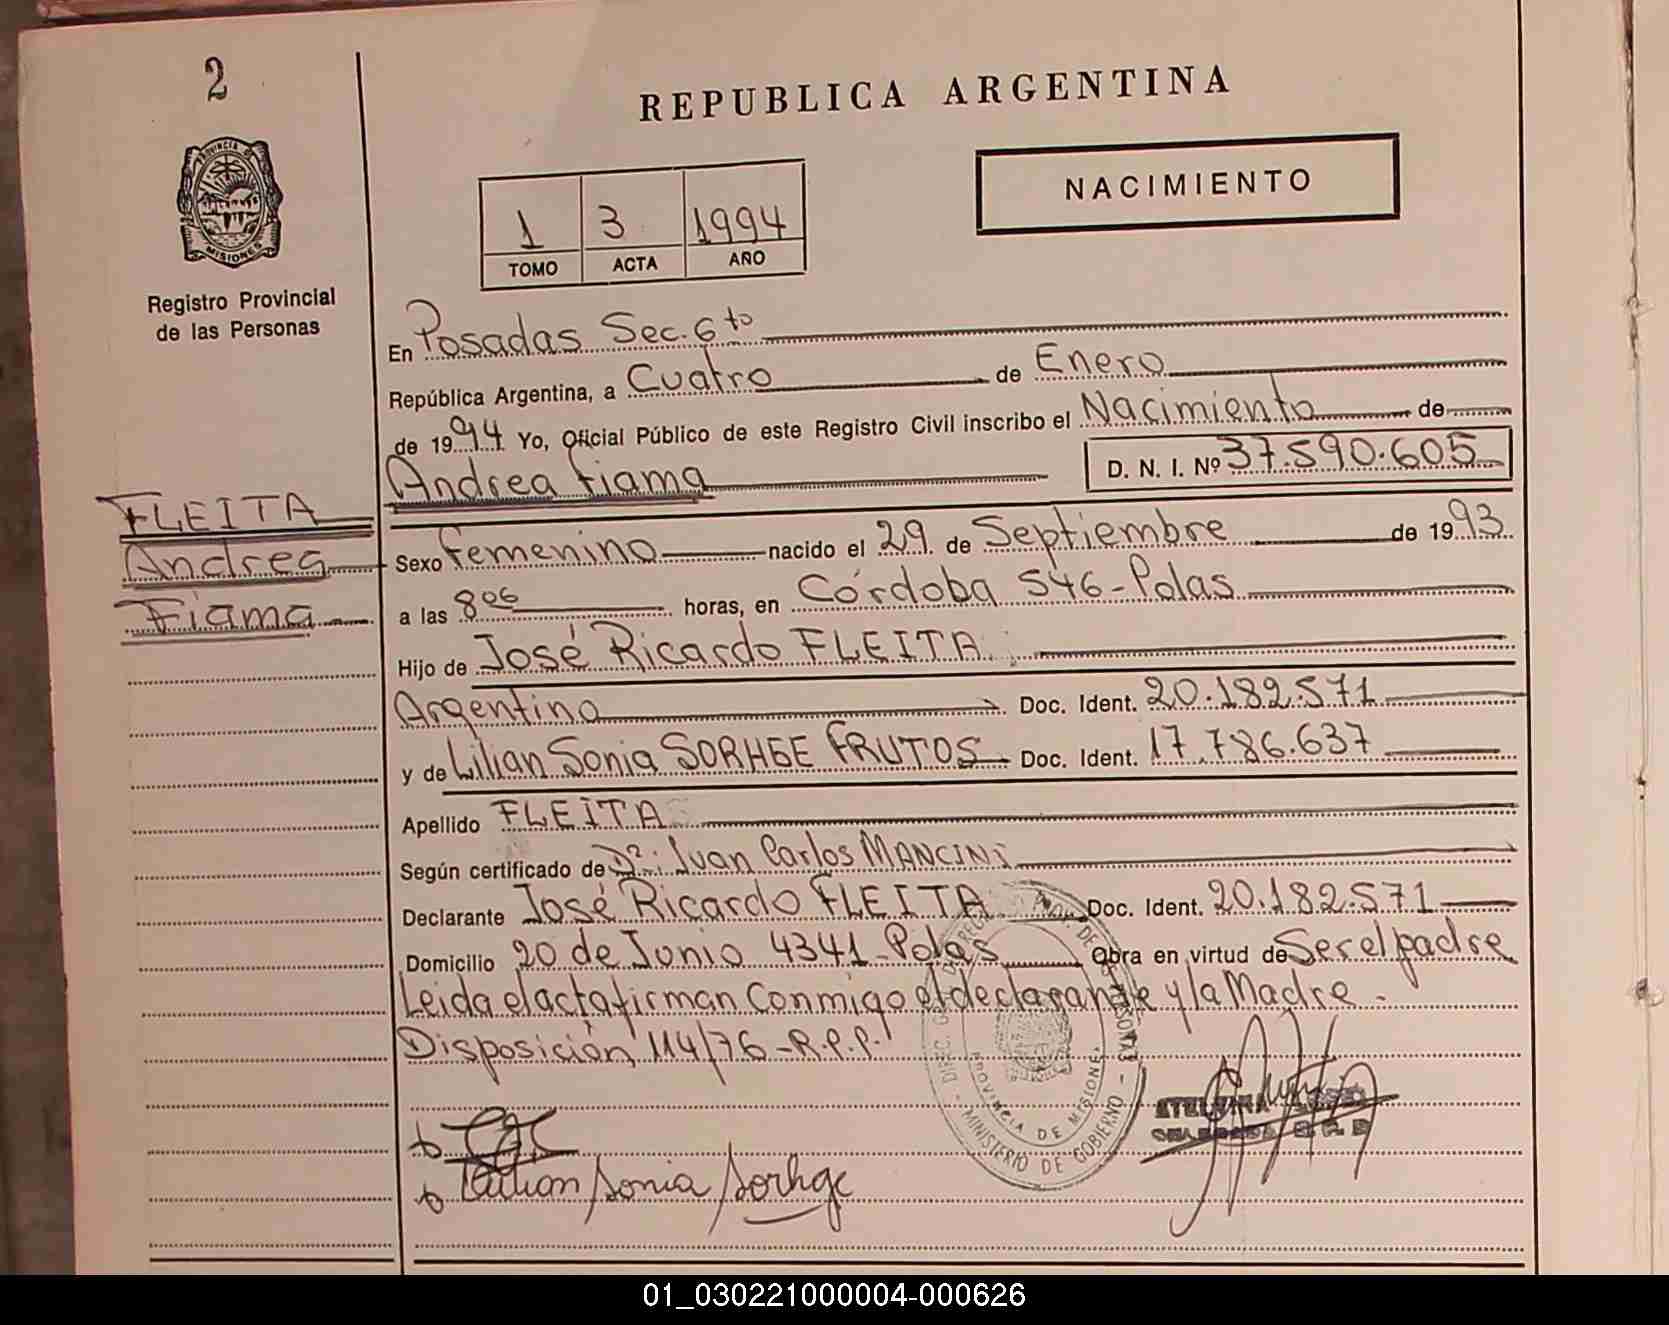 2
PROVINCIA DE
MISIONES
Registro Provincial
de las Personas
REPUBLICA ARGENTINA
NACIMIENTO
1 3 1994
TOMO ACTA AÑO
En Posadas Sec. 6to
República Argentina, a Cuatro de Enero
de 1994 Yo, Oficial Público de este Registro Civil inscribo el Nacimiento de
Andrea Fiama D. N. I. Nº 37.590.605
FLEITA
Andrea
Fiama
Sexo Femenino nacido el 29 de Septiembre de 1993
a las 8 06 horas, en Córdoba 546-Pdas
Hijo de José Ricardo FLEITA
Argentino Doc. Ident. 20.182.571
y de Lilian Sonia SORHGE FRUTOS Doc. Ident. 17.786.637
Apellido FLEITA
Según certificado de Dr. Juan Carlos MANCINI
Declarante José Ricardo FLEITA Doc. Ident. 20.182.571
Domicilio 20 de Junio 4341-Pdas Obra en virtud de Ser el padre
Leida el acta firman Conmigo el declarante y la Madre.
Disposición 114/76-R.P.P.
PROVINCIA DE MISIONES
MINISTERIO DE GOBIERNO
Lilian Sonia Sorhge
01_030221000004-000626